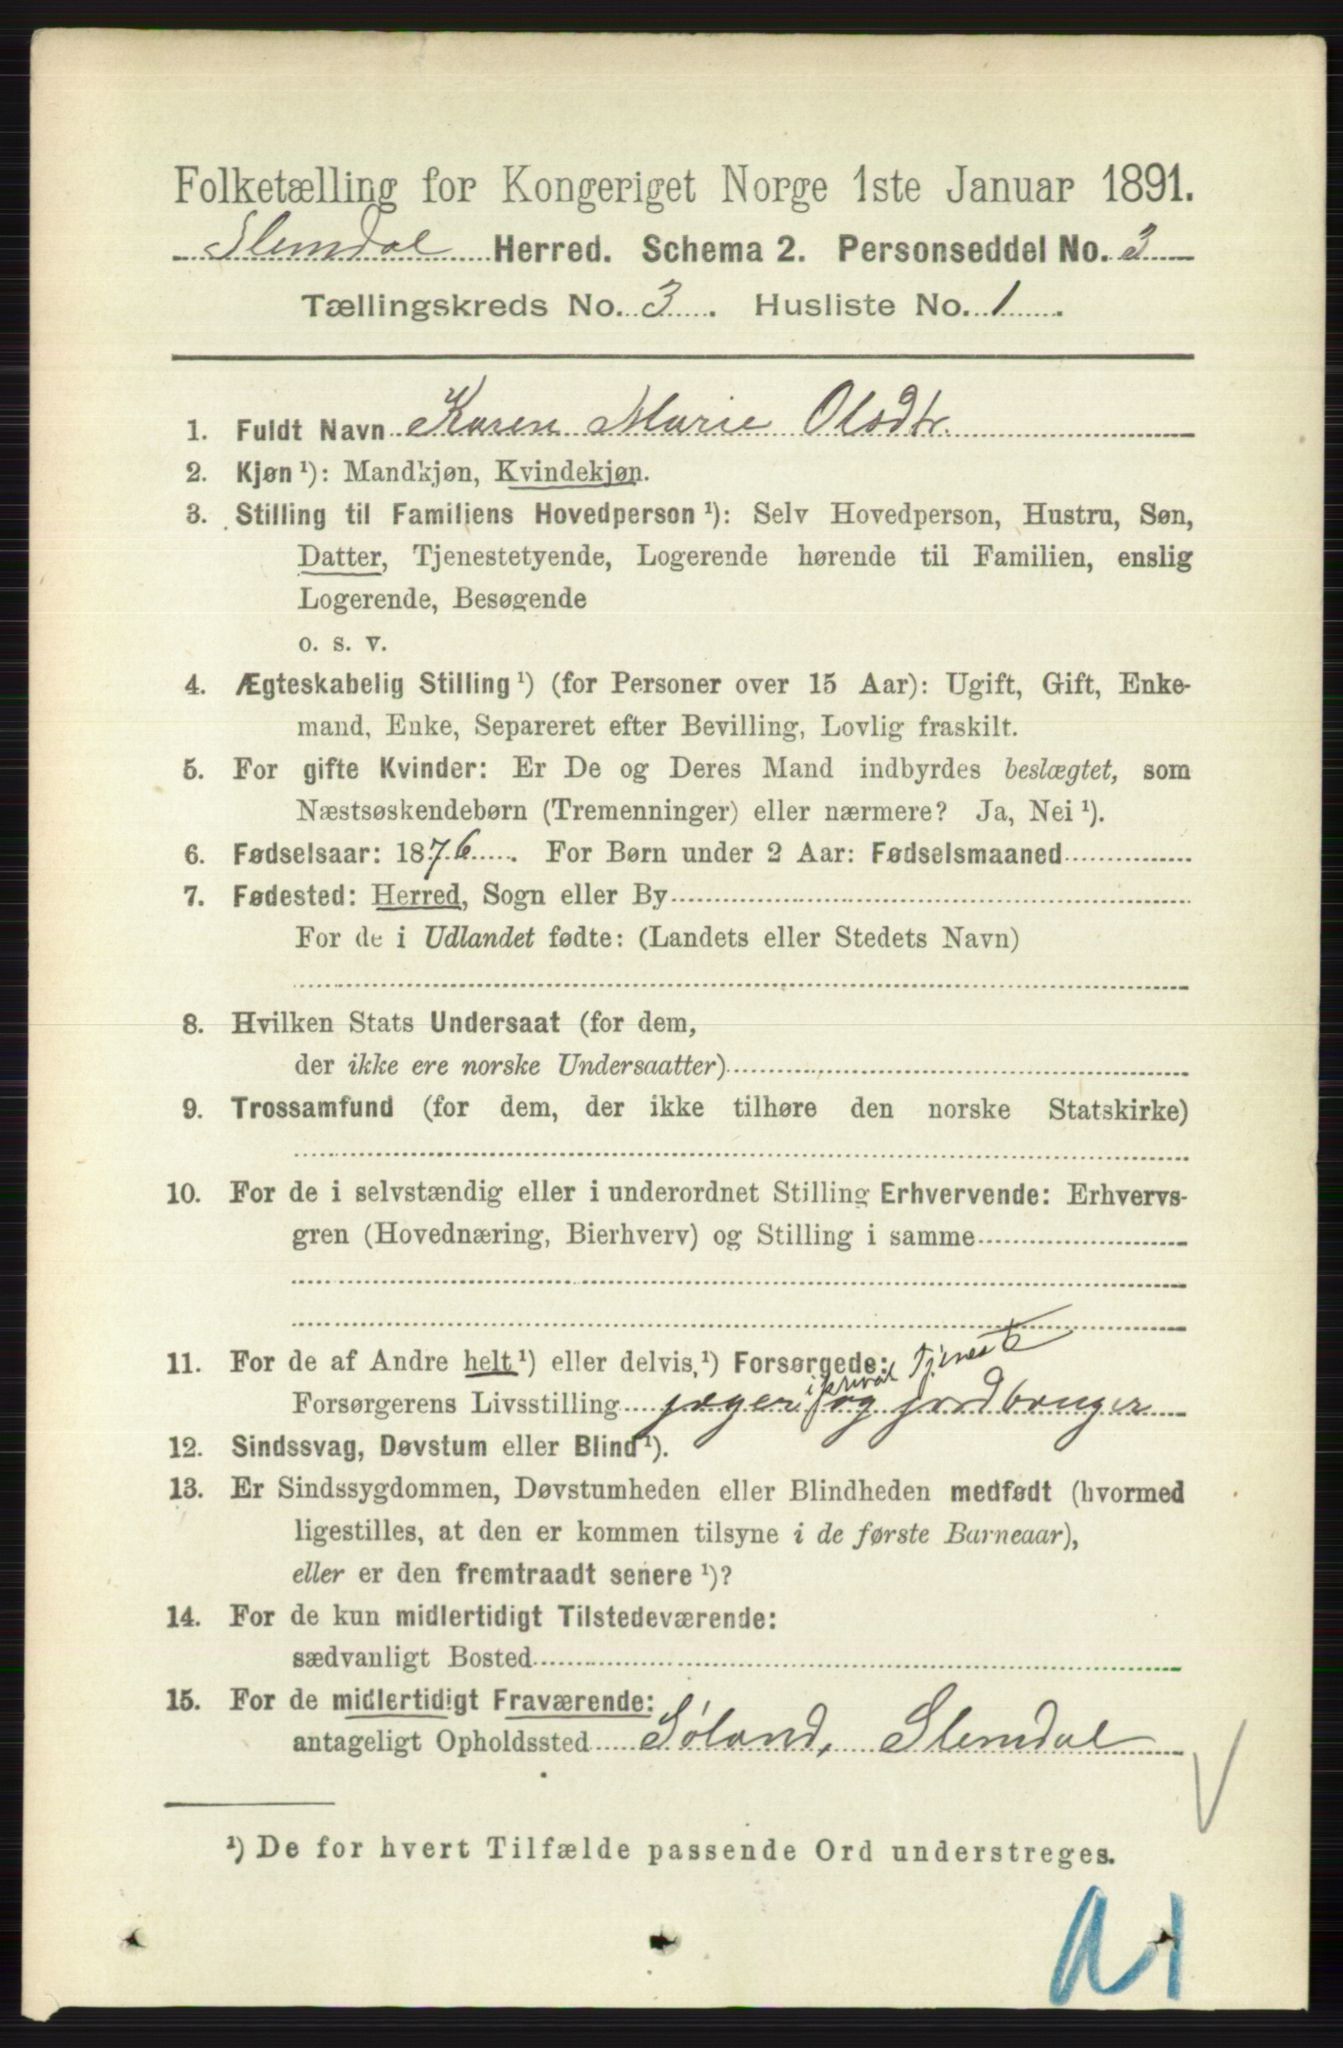 Folketælling for Kongeriget Norge 1ste Januar 1891.
Slemdal Herred. Schema 2. Personseddel No. 3
Tællingskreds No. 3. Husliste No. 1.
1. Fuldt Navn Karen Marie Olsdtr.
2. Kjøn ¹): Mandkjøn, Kvindekjøn.
3. Stilling til Familiens Hovedperson ¹): Selv Hovedperson, Hustru, Søn,
Datter, Tjenestetyende, Logerende hørende til Familien, enslig
Logerende, Besøgende
o. s. v.
4. Ægteskabelig Stilling ¹) (for Personer over 15 Aar): Ugift, Gift, Enke-
mand, Enke, Separeret efter Bevilling, Lovlig fraskilt.
5. For gifte Kvinder: Er De og Deres Mand indbyrdes beslægtet, som
Næstsøskendebørn (Tremenninger) eller nærmere? Ja, Nei ¹).
6. Fødselsaar: 1876. For Børn under 2 Aar: Fødselsmaaned
7. Fødested: Herred, Sogn eller By
For de i Udlandet fødte: (Landets eller Stedets Navn)
8. Hvilken Stats Undersaat (for dem,
der ikke ere norske Undersaatter)
9. Trossamfund (for dem, der ikke tilhøre den norske Statskirke)
10. For de i selvstændig eller i underordnet Stilling Erhvervende: Erhvervs-
gren (Hovednæring, Bierhverv) og Stilling i samme
11. For de af Andre helt ¹) eller delvis, ¹) Forsørgede:
i privat Tjeneste
Forsørgerens Livsstilling jæger og jordbruger
12. Sindssvag, Døvstum eller Blind ¹).
13. Er Sindssygdommen, Døvstumheden eller Blindheden medfødt (hvormed
ligestilles, at den er kommen tilsyne i de første Barneaar),
eller er den fremtraadt senere ¹)?
14. For de kun midlertidigt Tilstedeværende:
sædvanligt Bosted
15. For de midlertidigt Fraværende:
antageligt Opholdssted Søland, Slemdal
¹) De for hvert Tilfælde passende Ord understreges.